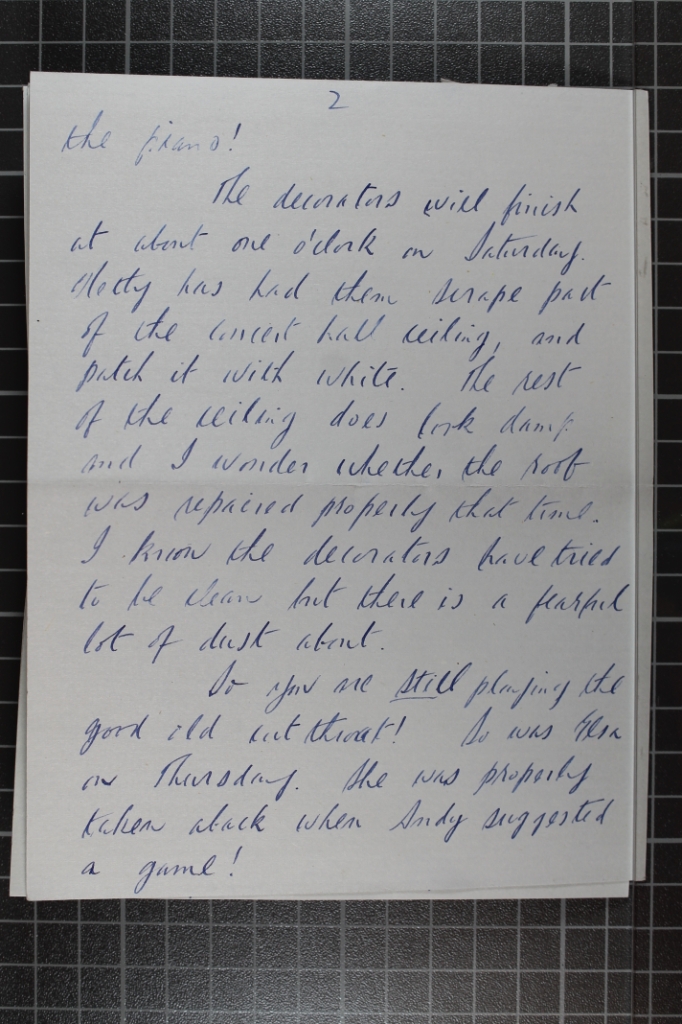 2
the piano!
The decorators will finish
at about one o'clock on Saturday.
Hetty has had them scrape part
of the concert hall ceiling, and
patch it with white. The rest
of the ceiling does look damp
and I wonder whether the roof
was repaired properly that time.
I know the decorators have tried
to be clean but there is a fearful
lot of dust about.
So you are still playing the
good old cut throat! So was Elsa
on Thursday. She was properly
taken aback when Andy suggested
a game!